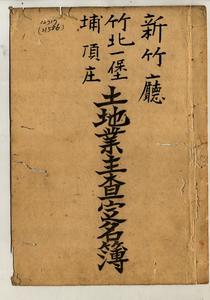 新竹廳
竹北一堡
埔頂庄
土地業主查定名簿